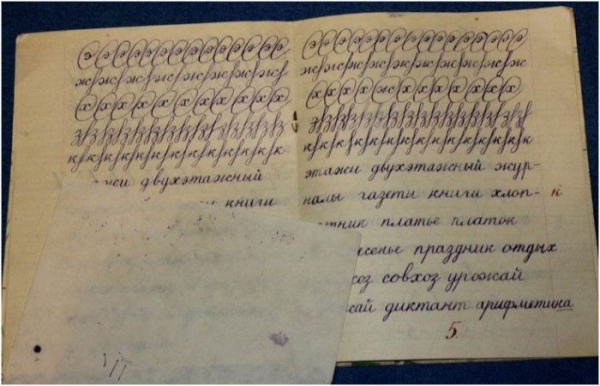 э э э э э э э э э э э э э
ж ж ж ж ж ж ж ж ж ж
х х х х х х х х х х х
з з з з з з з з з з з з
к к к к к к к к к к к к
жи двухэтажный
книги
э э э э э э э э э э э э э
ж ж ж ж ж ж ж ж ж ж
х х х х ж х х х х х х
з з з з з з з з з з з з
к к к к к к к к к к к к
этажи двухэтажный жур-
налы газеты книги хлоп- к
тник платье платок
сенье праздник отдых
хоз совхоз урожай
жай диктант арифметика
5